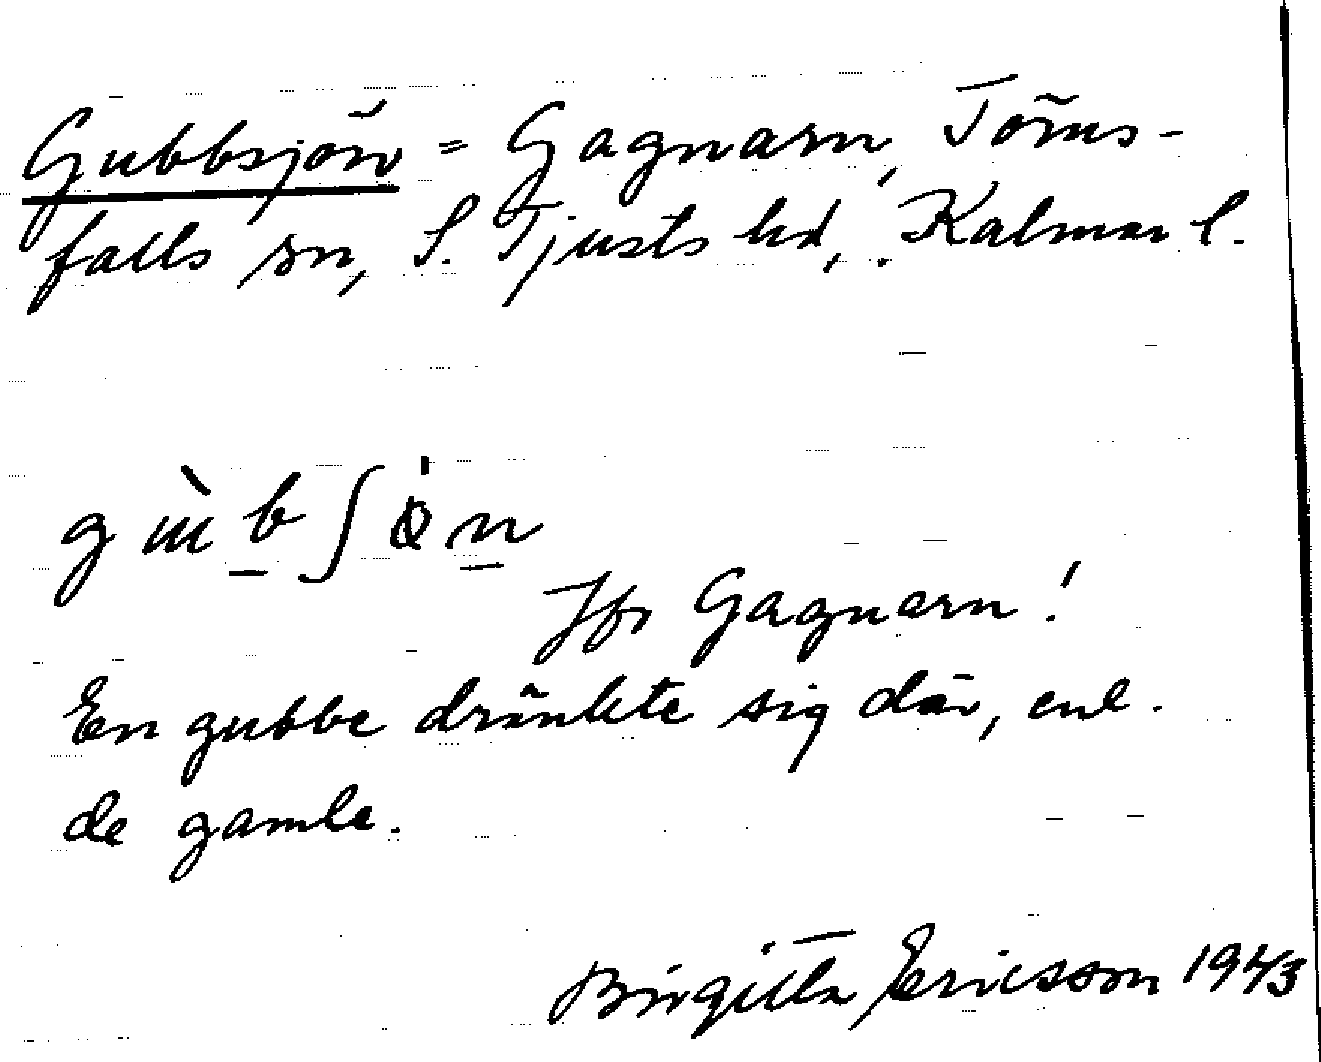 Gubbsjön = Gagnarn, Törns-
falls sn, S. Tjusts hd, Kalmar l.
gùbʃön
Jfr Gagnarn!
En gubbe dränkte sig där, enl.
de gamle.
Birgitta Ericsson 1943